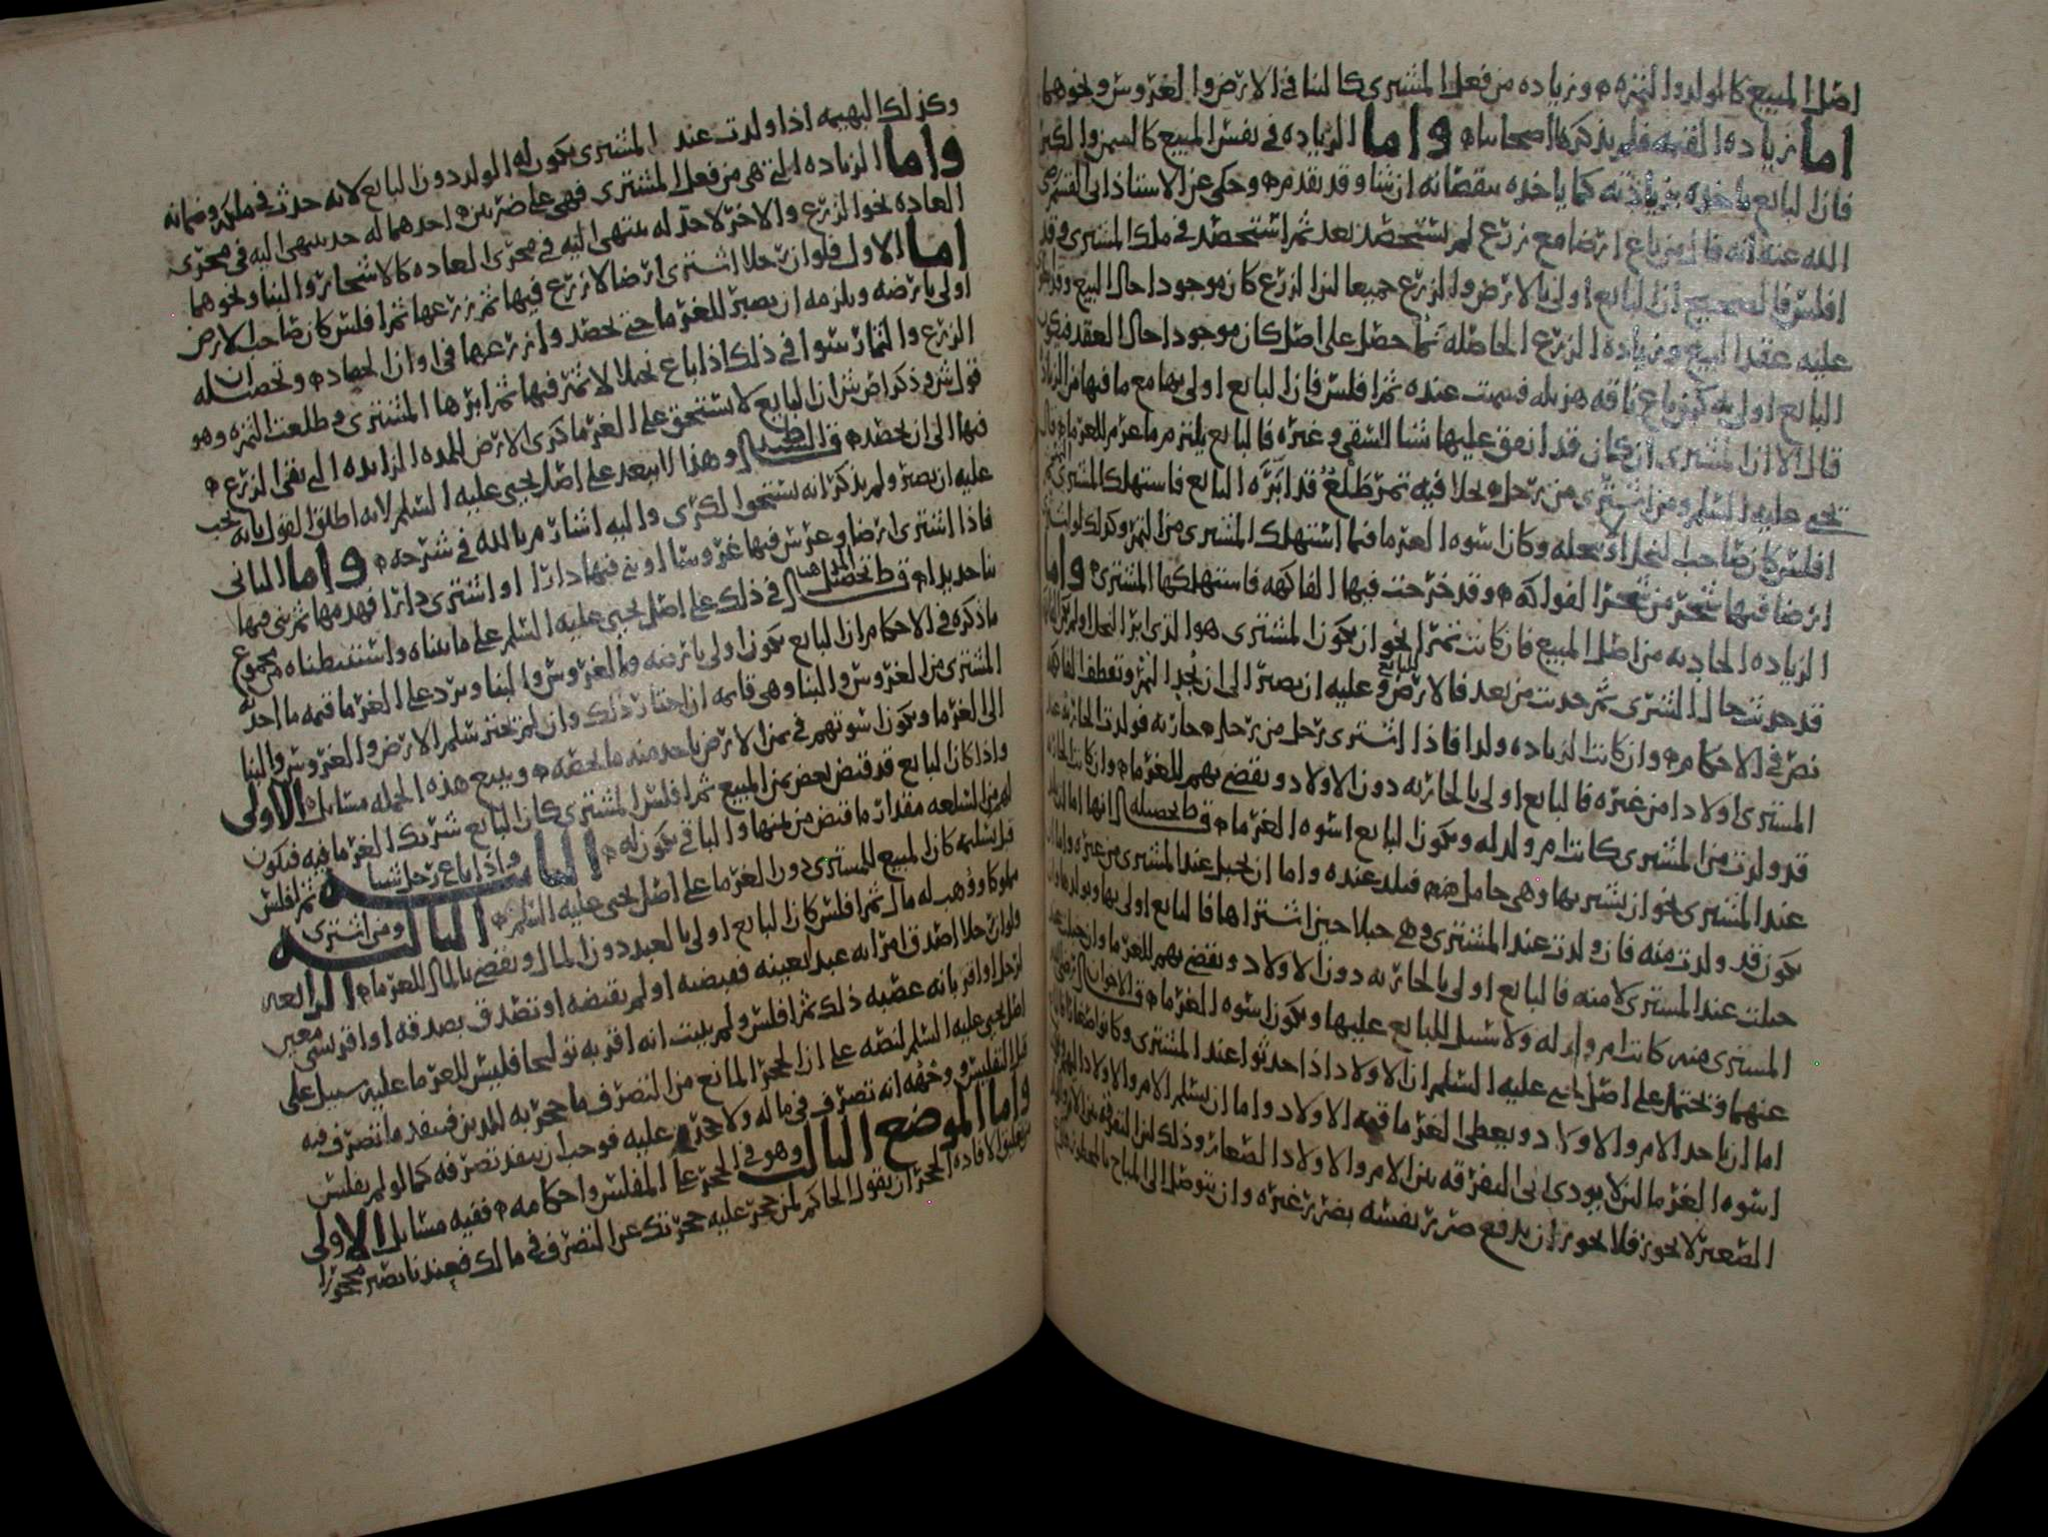 اصل المبيع كالولد والثمره وزياده من فعل المشتري كالبنا في الارض والغروس ونحوهما
اما زياده القيمه فلم يذكرها اصحابنا واما الزياده في نفس المبيع كالسمن والكبر
فان البايع ياخذه بزيادته كما ياخذه بنقصانه ان شا وقد تقدم وحكي عن الاستاذ ابي القسم
الله عنه انه قال من باع ارضا مع زرع لم يستحصد بعد ثم استحصد في ملك المشتري وقد
افلس فالصحيح ان البايع اولى بالارض والزرع جميعا لان الزرع كان موجودا حال البيع
عليه عقد البيع وزياده الزرع الحاصله نما حصل على اصل كان موجودا حال العقد فيكون
البايع اولى به كمن باع ناقه هزيله فسمنت عنده ثم افلس فان البايع اولى بها مع ما فيها من الزياده
قال الا ان المشتري ان كان قد انفق عليها شيا للسقي وغيره فالبايع يلتزم ما غرم للغرما
يحيى عليه السلم ومن اشترى من رجل نخلا فيه تمر طلع قد ابره البايع فاستهلك المشتري
افلس كان صاحب النخل اولى بنخله وكان اسوه الغرما فيما استهلك المشتري من التمر وكذلك لو اشترى
ارضا فيها شجر من شجر الفواكه وقد خرجت فيها الفاكهه فاستهلكها المشتري واما
الزياده الحادثه من اصل المبيع فان كانت ثمرا نحو ان يكون المشتري هو الذي ابر النخل
قد حدثت حال الشرى ثم حدثت من بعد فالارض للبايع وعليه ان يصبر الى ان يجد الثمر وتقطف الفاكهه
نص في الاحكام وان كانت الزياده ولدا فاذا اشترى رجل من رجل جاريه فولدت الجاريه عند
المشتري اولادا من غيره فالبايع اولى بالجاريه دون الاولاد ويقضى بهم للغرما وان كانت الجاريه
قد ولدت من المشتري كانت ام ولد له ويكون البايع اسوه الغرما
عند المشتري نحو ان يشتريها وهي حامل فتلد عنده واما ان تحبل عند المشتري من غيره
يكون قد ولدت منه فان ولدت عند المشتري وهي حبلا حين اشتراها فالبايع اولى بها وبولدها
حبلت عند المشتري لا منه فالبايع اولى بالجاريه دون الاولاد ويقضى بهم للغرما وان حبلت
المشتري منه كانت ام ولد له ولا سبيل للبايع عليها ويكون اسوه الغرما
عنهما ويحتمل على اصل يحيى عليه السلم ان الاولاد اذا حدثوا عند المشتري وكانوا صغارا
اما ان ياخذ الام والاولاد ويعطي الغرما قيمه الاولاد واما ان يسلم الام والاولاد
اسوه الغرما لئلا يودي الى التفرقه بين الام والاولاد الصغار وذلك لان التفرقه بين الام
الصغير لا يجوز فلا يجوز ان يدفع ضرر نفسه بضرر غيره وان يتوصل الى المباح بالمحظور
وكذلك البهيمه اذا ولدت عند المشتري يكون له الولد دون البايع لانه حدث في ملكه وضمانه
واما الزياده التي هي من فعل المشتري فهي على ضربين احدهما له حد ينتهي اليه في مجرى
العاده نحو الزرع والاخر لا حد له ينتهي اليه في مجرى العاده كالاشجار والبنا ونحوهما
اما الاول فلو ان رجلا اشترى ارضا لا زرع فيها ثم زرعها ثم افلس كان صاحب الارض
اولى بارضه ويلزمه ان يصبر للغرما حتى يحصد وان زرعها في اوان الحصاد
الزرع والثمار سوا في ذلك اذا باع نخلا لا ثمر فيها ثم ابرها المشتري وطلعت الثمره وهو
قول ش وذكر اص ش ان البايع لا يستحق على الغرما كرى الارض للمده الزايده التي بقى الزرع
فيها الى ان يحصد وهذا لا يبعد على اصل يحيى عليه السلم لانه اطلق القول بانه يجب
عليه ان يصبر ولم يذكر انه يستحق الكرى واليه اشار م بالله في شرحه واما الثاني
فاذا اشترى ارضا وغرس فيها غروسا او بنى فيها دارا او اشترى دارا فهدمها ثم بنى فيها
بنا جديدا في ذلك على اصل يحيى عليه السلم على ما بيناه واستنبطناه من مجموع
ما ذكره في الاحكام ان البايع يكون اولى بارضه وبالغروس والبنا ويرد على الغرما قيمه ما احدثه
المشتري من الغروس والبنا وهي قايمه ان اختار ذلك وان لم يختر سلم الارض والغروس والبنا
الى الغرما ويكون اسوتهم في ثمن الارض ياخذ منه ما يخصه ويتبع هذه الجمله مسايل الاولى
واذا كان البايع قد قبض بعض ثمن المبيع ثم افلس المشتري كان البايع شريك الغرما فيه فيكون
لهم من السلعه مقدار ما قبض من ثمنها والباقي يكون له الثانيه واذا باع رجل شيا ثم افلس
قبل تسليمه كان المبيع للمشتري دون الغرما على اصل يحيى عليه السلم الثالثه ومن اشترى
مملوكا ووهب له مال ثم افلس كان البايع اولى بالعبد دون المال ويقضى بالمال للغرما الرابعه
ولو ان رجلا اصدق امراته عبدا بعينه فقبضته او لم تقبضه او تصدق بصدقه او اقر بشي معين
لرجل او اقر بانه غصبه ذلك ثم افلس ولم يثبت انه اقر به توليجا فليس للغرما عليه سبيل على
اصل يحيى عليه السلم لنصه على ان الحجر المانع من التصرف ما حجر به للمدين فينفذ ما تصرف فيه
قبل التفليس ووجهه انه تصرف في ماله ولا حجر عليه فوجب ان ينفذ تصرفه كما لو لم يفلس
واما الموضع الثالث وهو في الحجر على المفلس واحكامه ففيه مسايل الاولى
الافاده الحجر ان يقول الحاكم لمن حجر عليه حجرتك عن التصرف في مالك فعندنا يصير محجورا